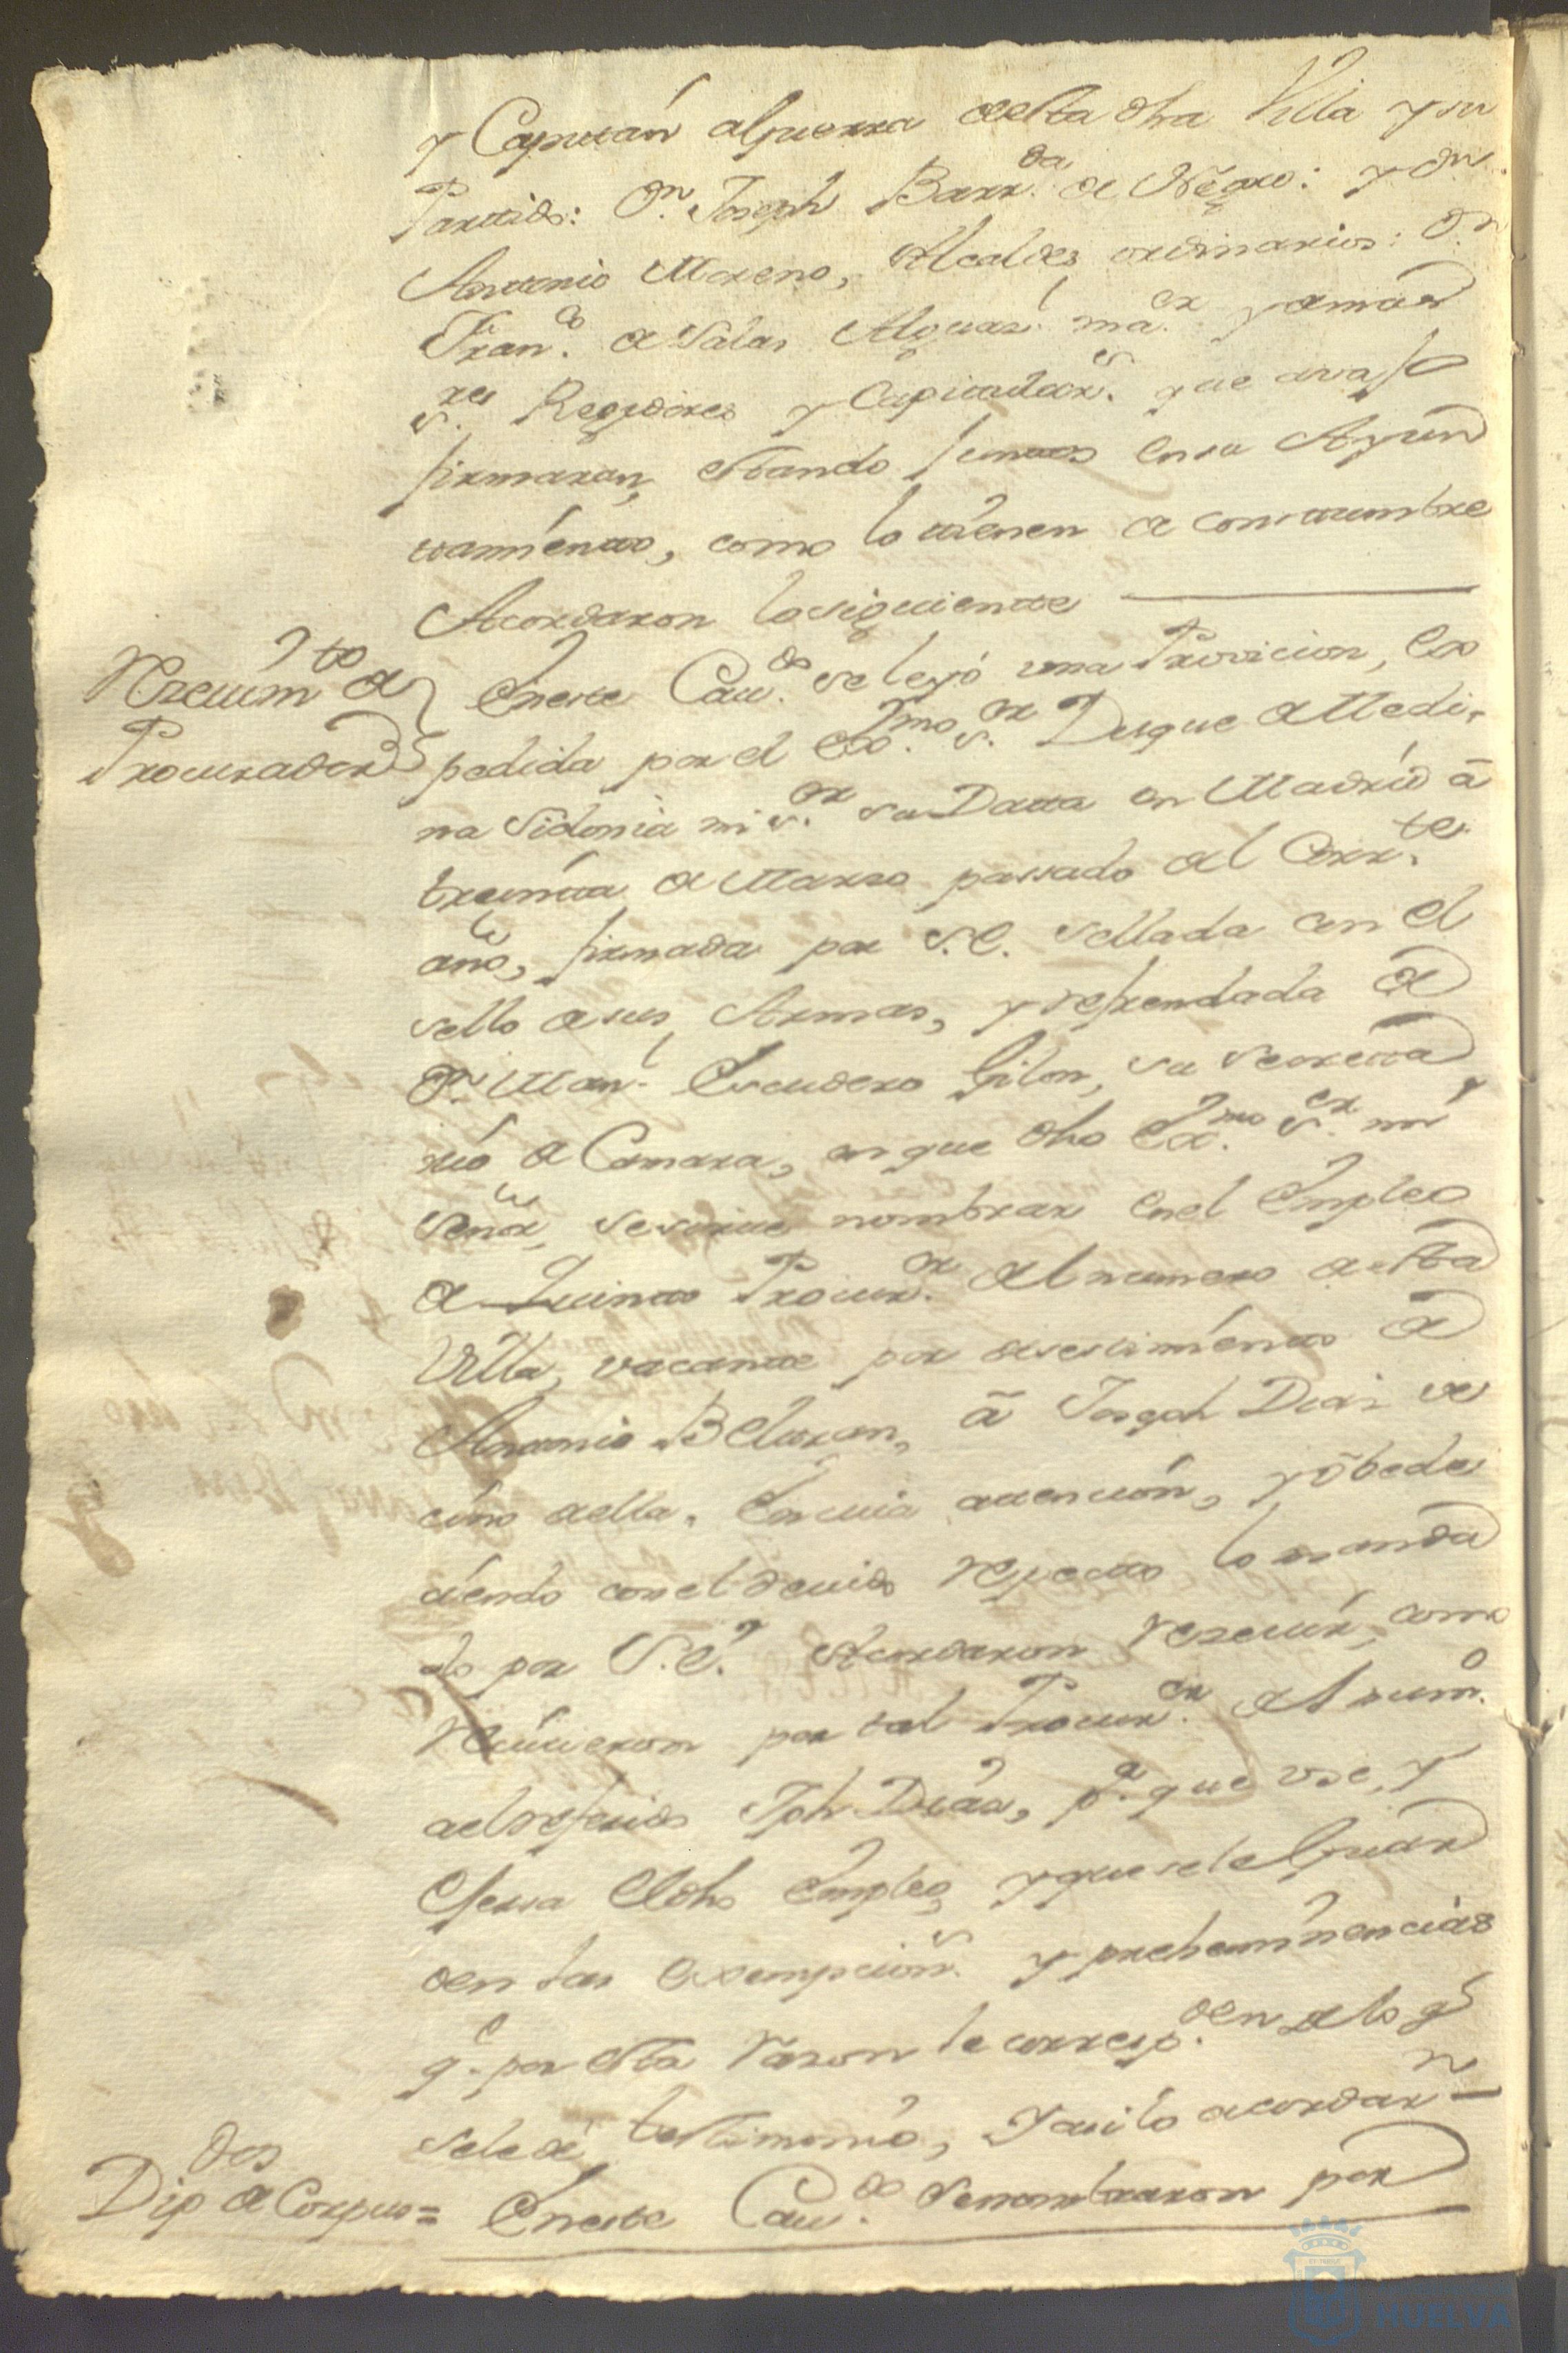 y Capitán aGuerra desta dha Villa y su
Partido: Dn. Joseph Barr.da de Negro: y Dn.
Antonio Moreno, Alcaldes ordinarios: Dn
Fran.co de Salas Alguasl. ma.or y demas
s.res Regidores y Capitular.s que avajo
firmaran, estando juntos en su Ayun
tamiento, como lo tienen de constumbre
Acordaron lo siguiente
Rrecivim.to de
Procurador
En este Cav.do se leyó una Provicion, Ex
pedida por el Exmo. s.or Duque de Medi-
na Sidonia mi s.or su Datta en Madrid â
treinta de Marso passado del Corr.te
año, firmada por S.E. sellada con el
sello de sus Armas, y refrendada de
Dn. Manl. Escudero Gilon, su secreta
rio de Camara, en que dho Ex.mo S.or mi
señor, se sirve nombrar en el Empleo
de Quinto Procur.or del numero desta
Villa, vacante por desestimiento de
Antonio Beltran, â Joseph Dias ve
cino della. En cuia attención, y ôbede
ciendo con el devido respecto lo manda
do por S.E. Acordaron recevir, como
recivieron por tal Procur.or del num.o
al referido Jph Dias, p.a que use, y
exersa el dho Empleo, y que se le Guar
den las exempcion.s y preheminencias
q. por esta rason le corresp.den de lo q
se le dé testimonio, y asi lo acordarn
Dipdos de Corpus =
En este Cav.do se nombraron por
HUELVA